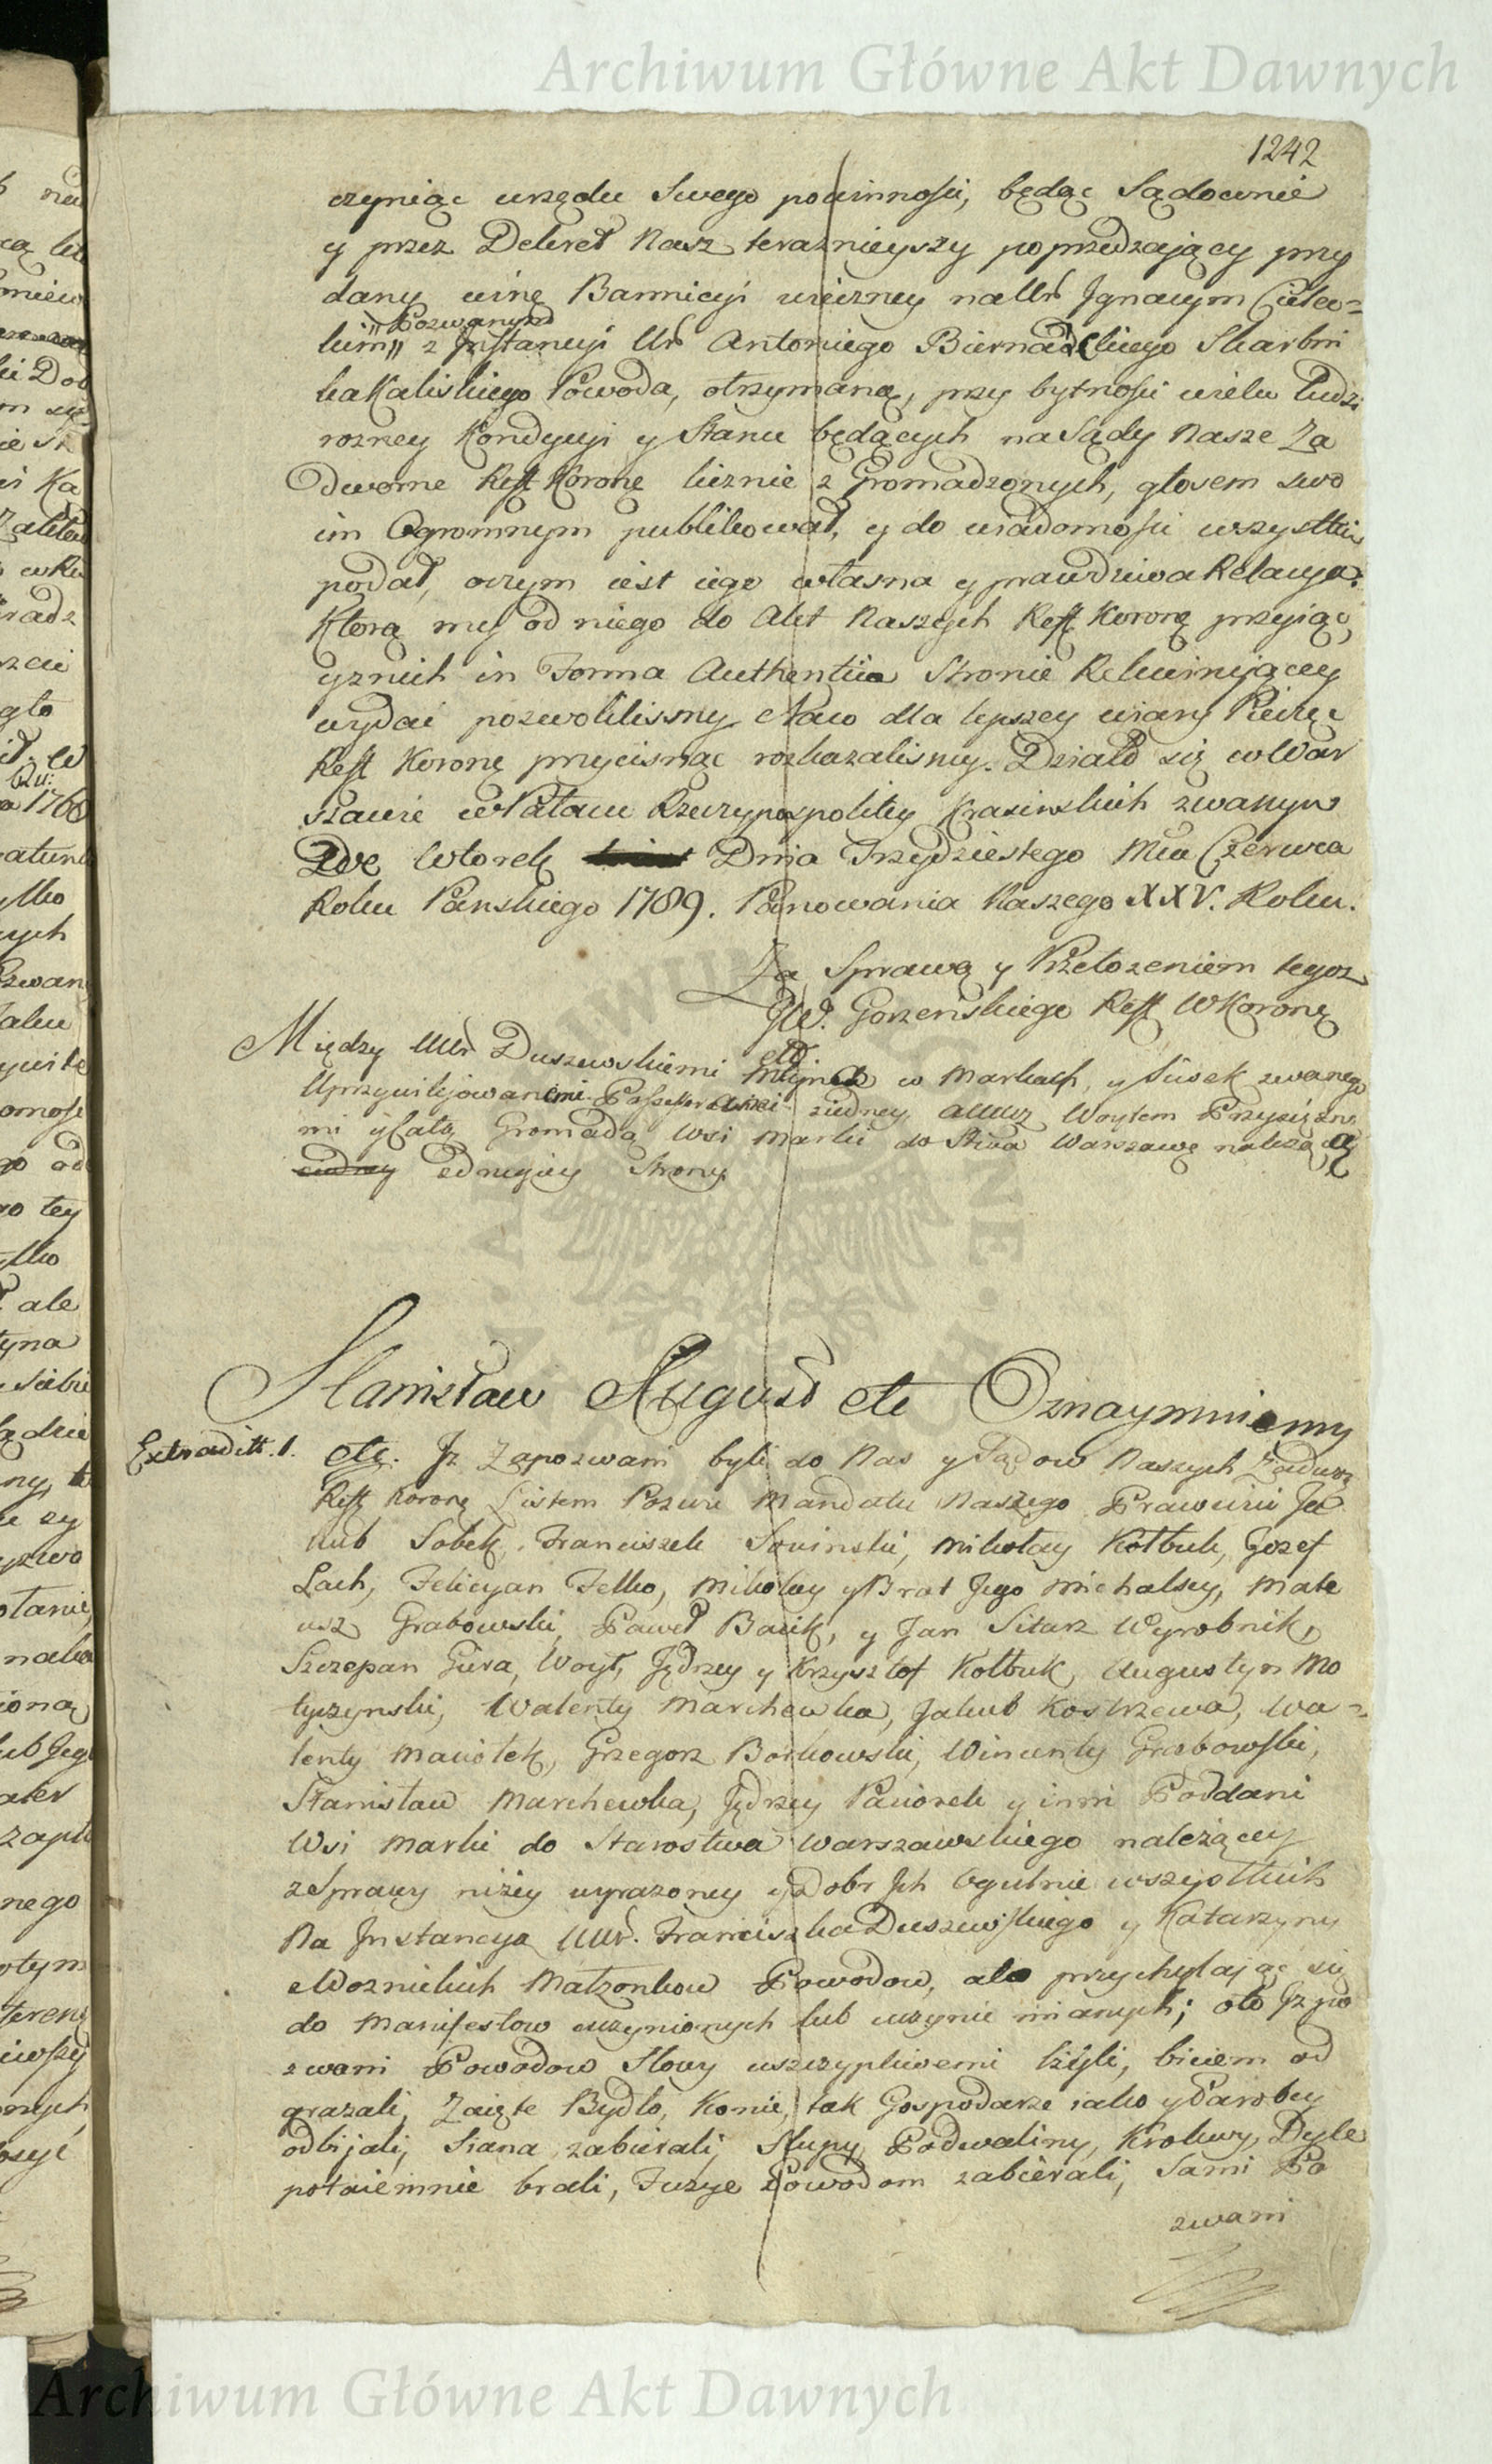 Archiwum Główne Akt Dawnych
1242
czyniąc urzędu Swego powinności, będąc Sądownie
y przez Dekret Nasz terazniejszy poprzedzaiący przy
dany winę Bannicyi wieczney na Ur Ignacym Cielec=
kim" Pozwanym z Instancyi Ur Antoniego Biernackiego Skarbni
ka Kaliskiego Powoda, otrzymaną, przy bytnosci wielu ludzi
rozney Kondycyi y Stanu będących na Sądy Nasze Za
dworne Reff Koronę licznie zgromadzonych, głosem swo
im Ogromnym publikował, y do wiadomości wszystkim
podał, oczym iest iego własna y prawdziwa Relacya.
Ktorą my od niego do Akt Naszych Reff. Koronę przyiąć,
yznich in Forma Authentica Stronie Rekwiruiącey
wydać pozwolilismy. Na co dla lepszey wiary Pieczęć
Reff Koronę przycisnąć rozkazalismy. Działo się w War
szawie w Pałacu Rzeczypospolitey Krasinskich zwanym
We Wtorek Dnia Trzydziestego Mca Czerwca
Roku Panskiego 1789. Panowania Naszego XXV. Roku.
Za Sprawą y Przełozeniem tegoz
JW. Gorzenskiego Reff W Koronę
Między UUr Duszewskiemi Młyna w Markach, y Siwek zwanego
Uprzywilejowanemi z iedney, a Woytem Przysięzne
mi y Całą Gromadą Wsi Marki do Stwa Warszawę należącą
z drugiey Strony
Stanisław August etc Oznaymuiemy
Extradit. 1. etc. Iz Zapozwani byli do Nas y Sądow Naszych Zadwor
Reff Koronę Listem Pozwu Mandatu Naszego Prawnie Ja
kub Sobek, Franciszek Sowinski, Mikołay Kołbuk, Jozef
Lach, Felicyan Felko, Mikołay y Brat Jego Michalscy, Mate
usz Grabowski, Paweł Bacik, y Jan Sitarz Wyrobnik,
Szczepan Giera, Woyt, Jędrzey y Krzysztof Kołbuk, Augustyn Mo
tyczynski, Walenty Marchewka, Jakub Kostrzewa, Wa=
lenty Maciołek, Grzegorz Borkowski, Wincenty Grabowski,
Stanisław Marchewka, Jędrzey Paciorek y inni Poddani
Wsi Marki do Starostwa Warszawskiego należącey
z Sprawy niżey wyrazoney y z Dobr Ich Ogulnie wszystkich
Na Instancyą UUr. Franciszka Duszewskiego y Katarzyny
Woznickich Małzonkow Powodow, ale przychylaiąc się
do Manifestow uczynionych lub uczynić mianych; oto Iz po
zwani Powodow Słowy uszczypliwemi lżyli, biciem od
grazali, Zaięte Bydło, Konie, tak Gospodarze iako y Parobcy
odbijali, Siana zabierali, Słupy, Podwaliny, Krokwy, Dyle
potaiemnie brali, Fuzye Powodom zabierali, Sami Po
zwani
Archiwum Główne Akt Dawnych